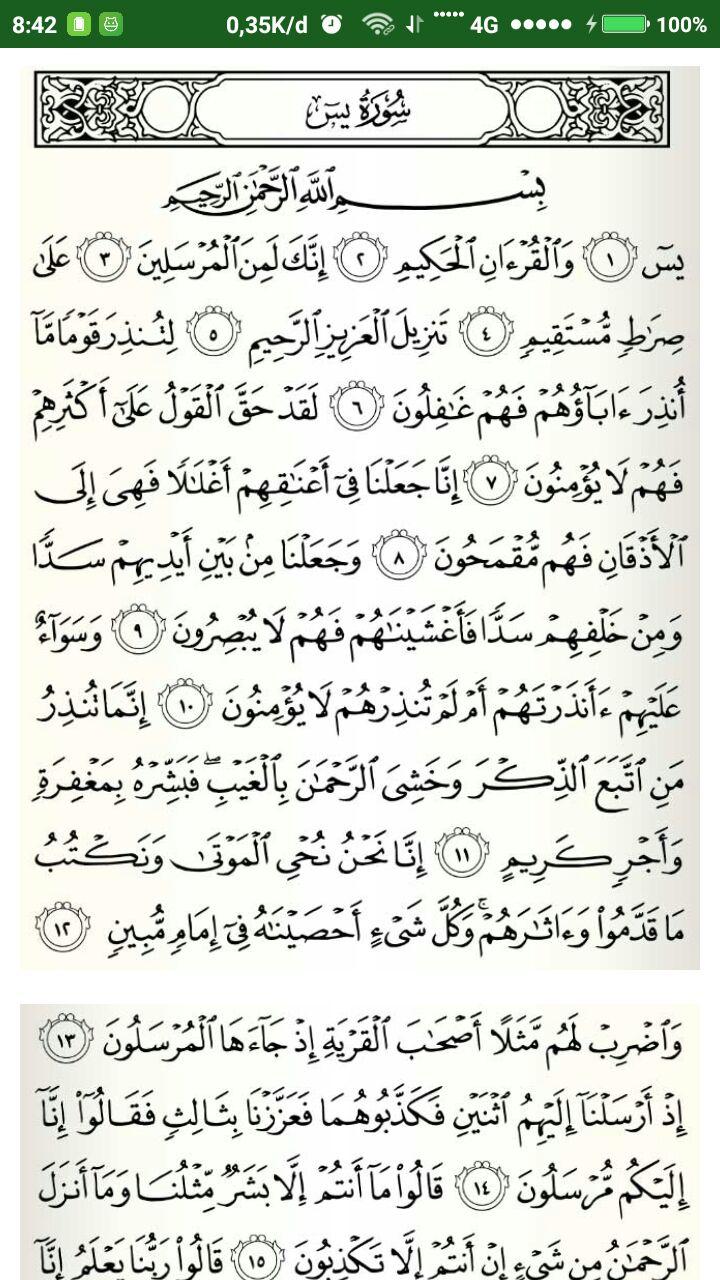 8:42 0,35K/d 4G 100%
سُورَةُ يسٓ
بِسْمِ ٱللَّهِ ٱلرَّحْمَٰنِ ٱلرَّحِيمِ
يسٓ ١ وَٱلْقُرْءَانِ ٱلْحَكِيمِ ٢ إِنَّكَ لَمِنَ ٱلْمُرْسَلِينَ ٣ عَلَىٰ
صِرَٰطٍ مُّسْتَقِيمٍ ٤ تَنزِيلَ ٱلْعَزِيزِ ٱلرَّحِيمِ ٥ لِتُنذِرَ قَوْمًا مَّآ
أُنذِرَ ءَابَآؤُهُمْ فَهُمْ غَٰفِلُونَ ٦ لَقَدْ حَقَّ ٱلْقَوْلُ عَلَىٰٓ أَكْثَرِهِمْ
فَهُمْ لَا يُؤْمِنُونَ ٧ إِنَّا جَعَلْنَا فِىٓ أَعْنَٰقِهِمْ أَغْلَٰلًا فَهِىَ إِلَى
ٱلْأَذْقَانِ فَهُم مُّقْمَحُونَ ٨ وَجَعَلْنَا مِنۢ بَيْنِ أَيْدِيهِمْ سَدًّا
وَمِنْ خَلْفِهِمْ سَدًّا فَأَغْشَيْنَٰهُمْ فَهُمْ لَا يُبْصِرُونَ ٩ وَسَوَآءٌ
عَلَيْهِمْ ءَأَنذَرْتَهُمْ أَمْ لَمْ تُنذِرْهُمْ لَا يُؤْمِنُونَ ١٠ إِنَّمَا تُنذِرُ
مَنِ ٱتَّبَعَ ٱلذِّكْرَ وَخَشِىَ ٱلرَّحْمَٰنَ بِٱلْغَيْبِ ۖ فَبَشِّرْهُ بِمَغْفِرَةٍ
وَأَجْرٍ كَرِيمٍ ١١ إِنَّا نَحْنُ نُحْىِ ٱلْمَوْتَىٰ وَنَكْتُبُ
مَا قَدَّمُوا۟ وَءَاثَٰرَهُمْ ۚ وَكُلَّ شَىْءٍ أَحْصَيْنَٰهُ فِىٓ إِمَامٍ مُّبِينٍ ١٢
وَٱضْرِبْ لَهُم مَّثَلًا أَصْحَٰبَ ٱلْقَرْيَةِ إِذْ جَآءَهَا ٱلْمُرْسَلُونَ ١٣
إِذْ أَرْسَلْنَآ إِلَيْهِمُ ٱثْنَيْنِ فَكَذَّبُوهُمَا فَعَزَّزْنَا بِثَالِثٍ فَقَالُوٓا۟ إِنَّآ
إِلَيْكُم مُّرْسَلُونَ ١٤ قَالُوا۟ مَآ أَنتُمْ إِلَّا بَشَرٌ مِّثْلُنَا وَمَآ أَنزَلَ
ٱلرَّحْمَٰنُ مِن شَىْءٍ إِنْ أَنتُمْ إِلَّا تَكْذِبُونَ ١٥ قَالُوا۟ رَبُّنَا يَعْلَمُ إِنَّآ